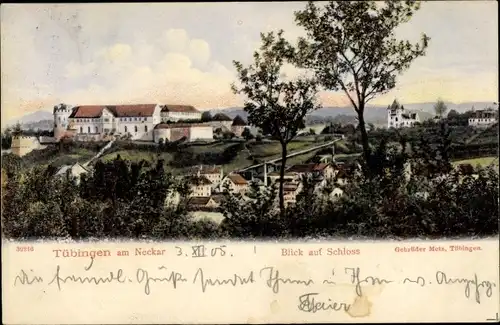 36916 Tübingen am Neckar 3. XII 05. Blick auf Schloss Gebrüder Metz, Tübingen.
Die freundl. Grüße sendet Ihnen u. Ihren w. Angehörg.
Maier